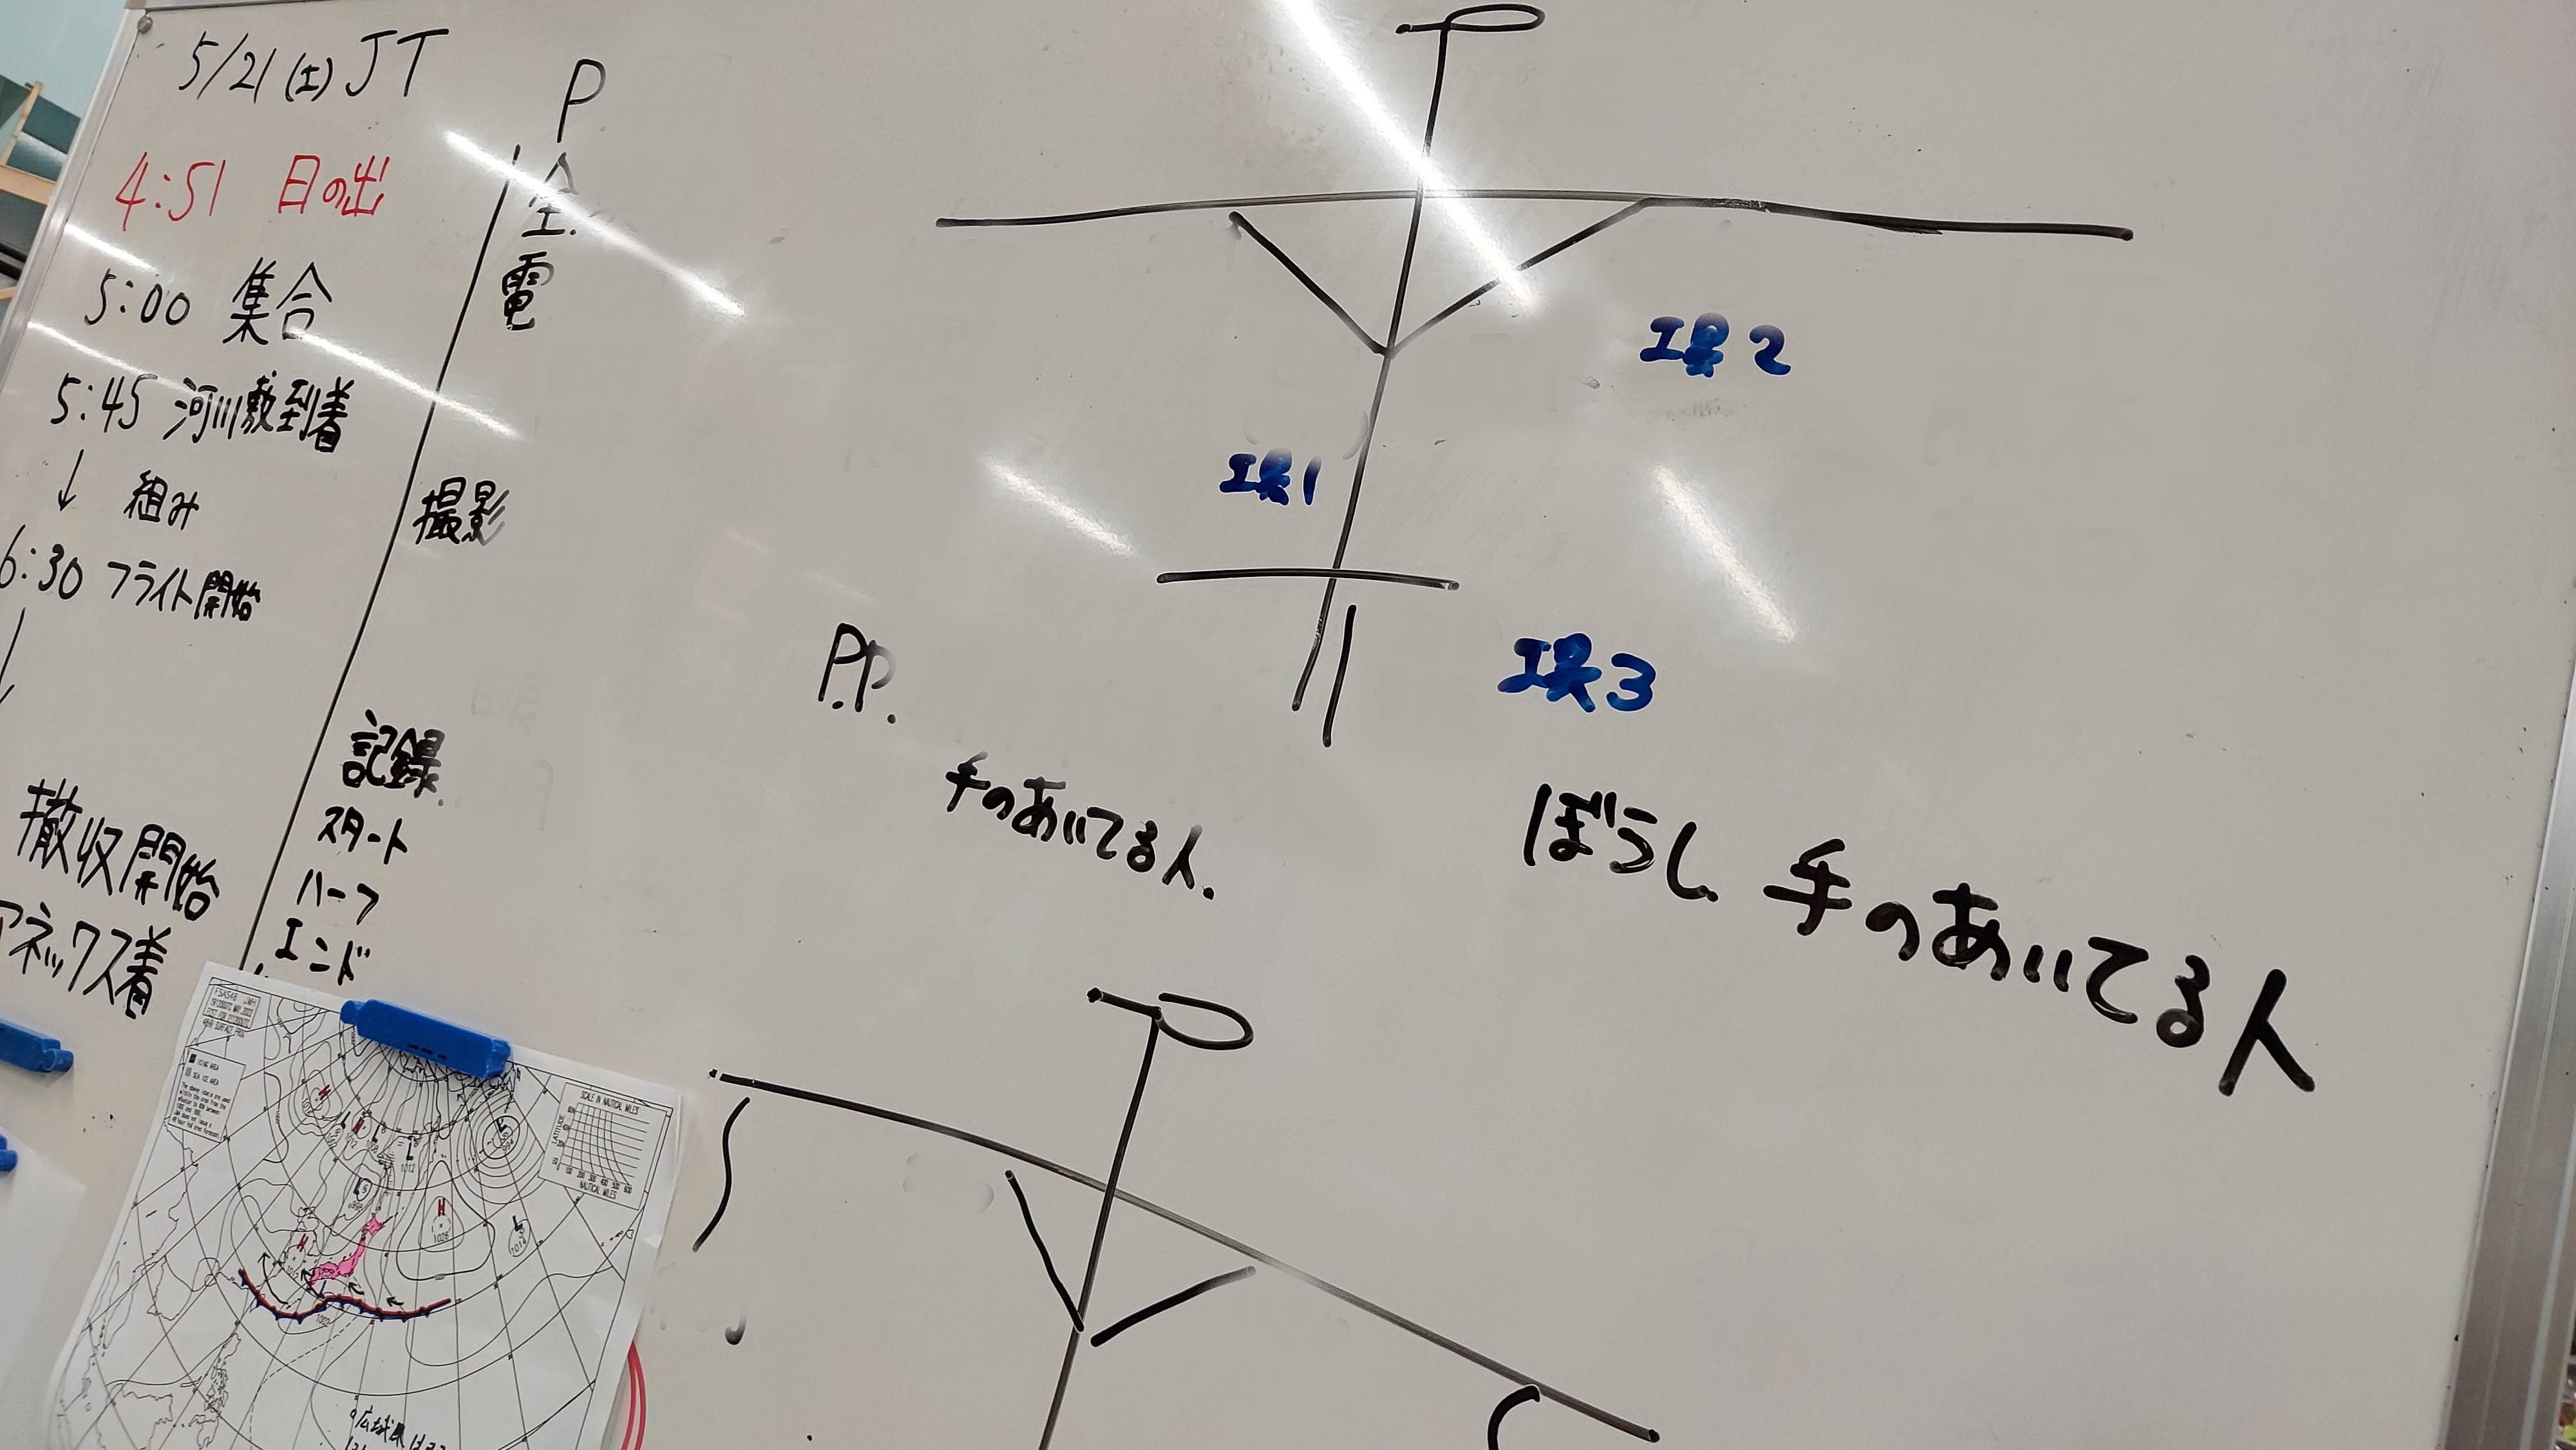 5/21(土)JT
4:51 日の出
5:00 集合
5:45 河川敷到着
↓ 組み
6:30 フライト開始
↓
撤収開始
アネックス着
P
全.
電
撮影
記録.
スタート
ハーフ
エンド
工具2
工具1
工具3
P.P.
手のあいてる人.
ぼうし 手のあいてる人
FSAS48 JMH
SCALE IN NAUTICAL MILES
NAUTICAL MILES
H
H
H
H
L
L
L
1012
1026
1014